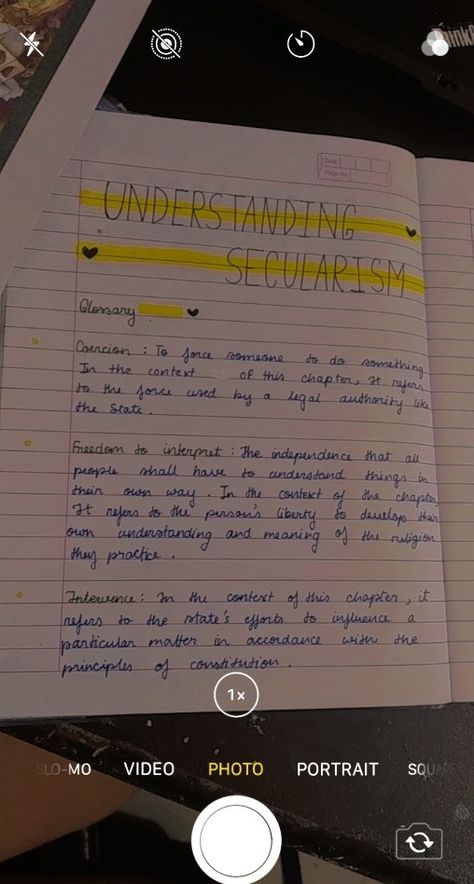 Date
Page No.
UNDERSTANDING
SECULARISM
Glossary
Coercion : To force someone to do something.
In the context of this chapter, It refers
to the force used by a legal authority like
the State.
Freedom to interpret : The independence that all
people shall have to understand things in
their own way. In the context of the chapter,
It refers to the person's liberty to develop their
own understanding and meaning of the religion
they practice.
Intervence : In the context of this chapter, it
refers to the state's efforts to influence a
particular matter in accordance with the
principles of constitution.
1x
SLO-MO VIDEO PHOTO PORTRAIT SQUARE